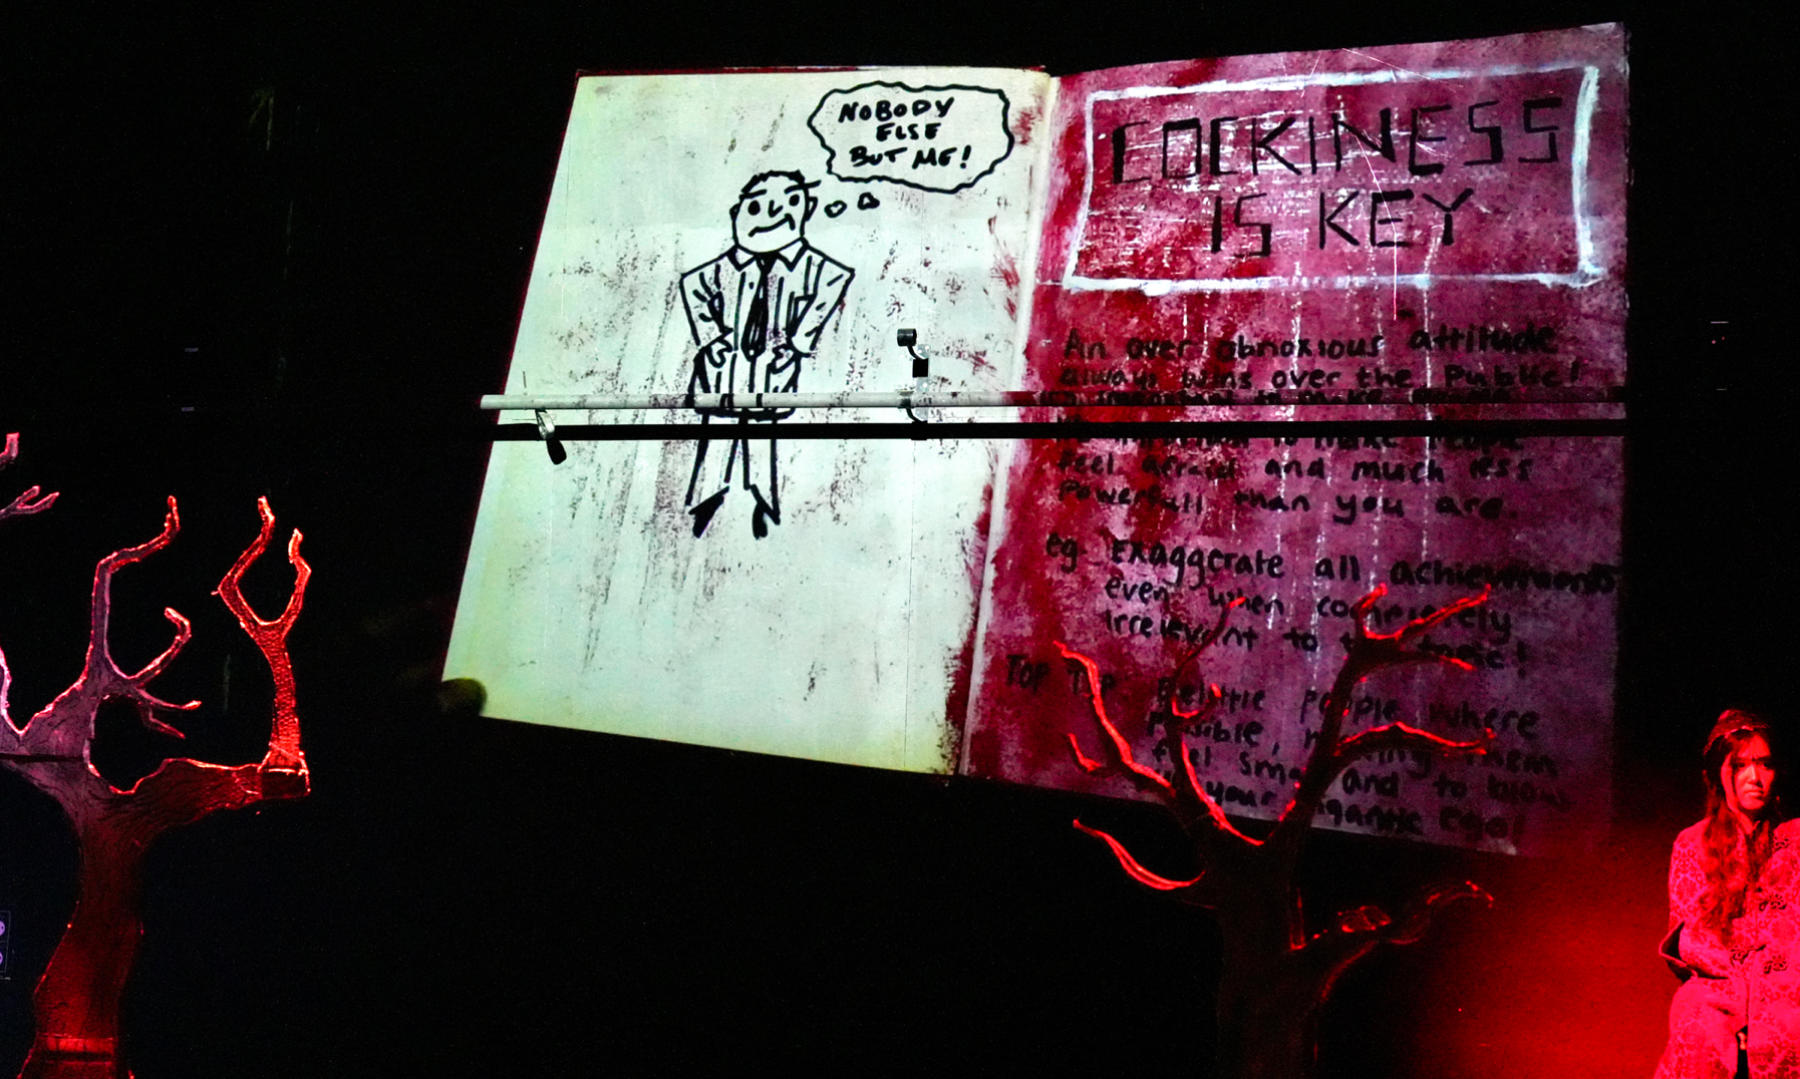 NOBODY
ELSE
BUT ME!
COCKINESS
IS KEY
An over obnoxious attitude
always wins over the Public!
to make people
feel afraid and much less
powerfull than you are.
eg Exaggerate all achievements
even when completely
irrelevant to the topic!
TOP TIP Belittle people where
Possible, making them
feel small and to blow
your gigantic ego!